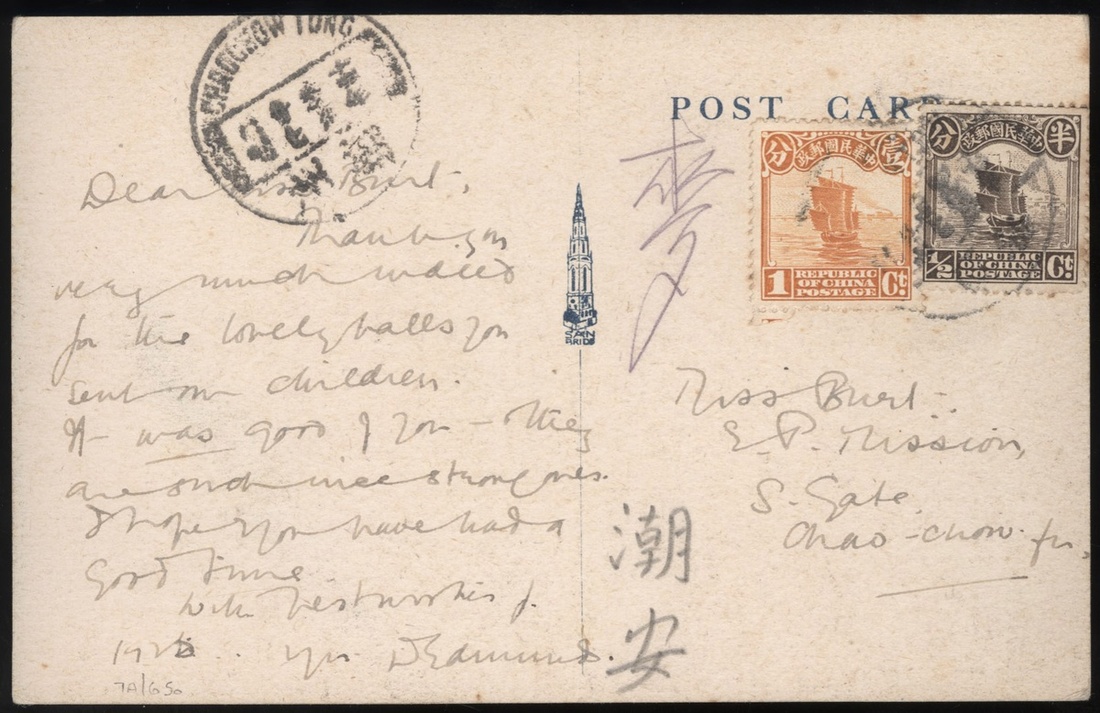 CHAOCHOW TUNG
POST CARD
分 壹
中華民國郵政
1 REPUBLIC OF CHINA POSTAGE Ct.
分 半
中華民國郵政
1/2 REPUBLIC OF CHINA POSTAGE Ct.
Dear Miss Burt,
Thank you
very much indeed
for the lovely balls you
sent our children.
It was good of you - they
are such nice strong ones.
I hope you have had a
good time
With best wishes
yrs
7A/650
Miss Burt.
E. P. Mission,
S. Gate,
Chao-chow-fu.
潮
安